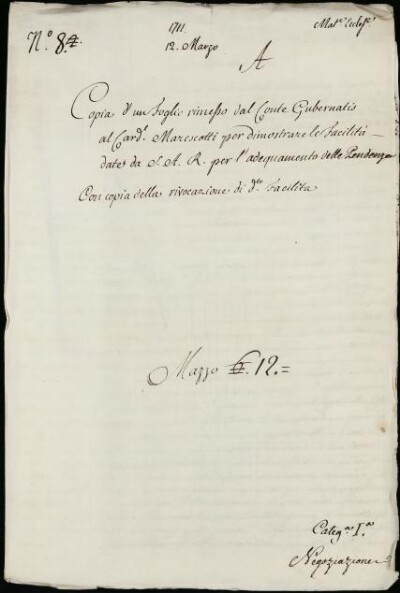 N.º 8.
1711.
12. Marzo
Mat.ª Eclesª
A
Copia d'un Foglio rimesso dal Conte Gubernatis
al Card.e Marescotti per dimostrare le Facilità
date da S. A. R. per l'adequamento delle Pendenze
Con copia della rivocazione di d.te Facilità
Mazzo 12.=
Categ.a I.a
Negoziazione